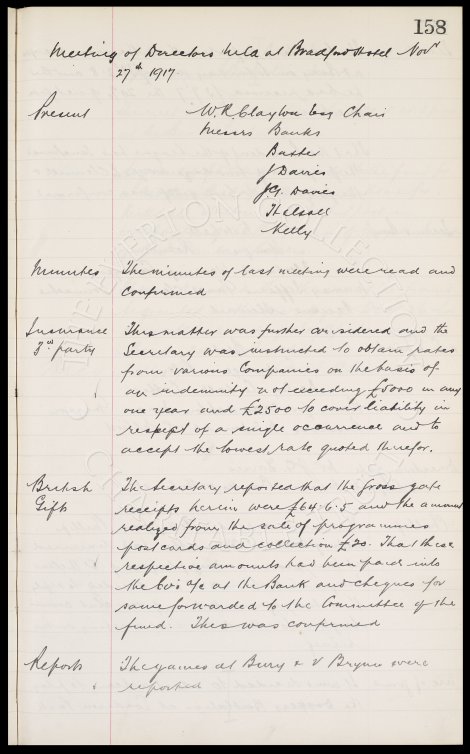 158
Meeting of Directors held at Bradford Hotel Novr
27th 1917.
Present W. R. Clayton Esq Chair
Messrs Banks
Baxter
J Davies
J. G. Davies
Halsall
Kelly
Minutes The minutes of last meeting were read and
confirmed
Insurance This matter was further considered and the
3rd party Secretary was instructed to obtain rates
from various Companies on the basis of
an indemnity not exceeding £5000 in any
one year and £2500 to cover liability in
respect of a single occurrence and to
accept the lowest rate quoted therefor.
British The Secretary reported that the gross gate
Gifts receipts herein were £64.6.5 and the amount
realized from the sale of programmes
postcards and collection £20. That these
respective amounts had been paid into
the Co's a/c at the Bank and cheques for
same forwarded to the Committee of the
fund. This was confirmed
Reports The games at Bury & v Brynn were
reported
THE EVERTON COLLECTION